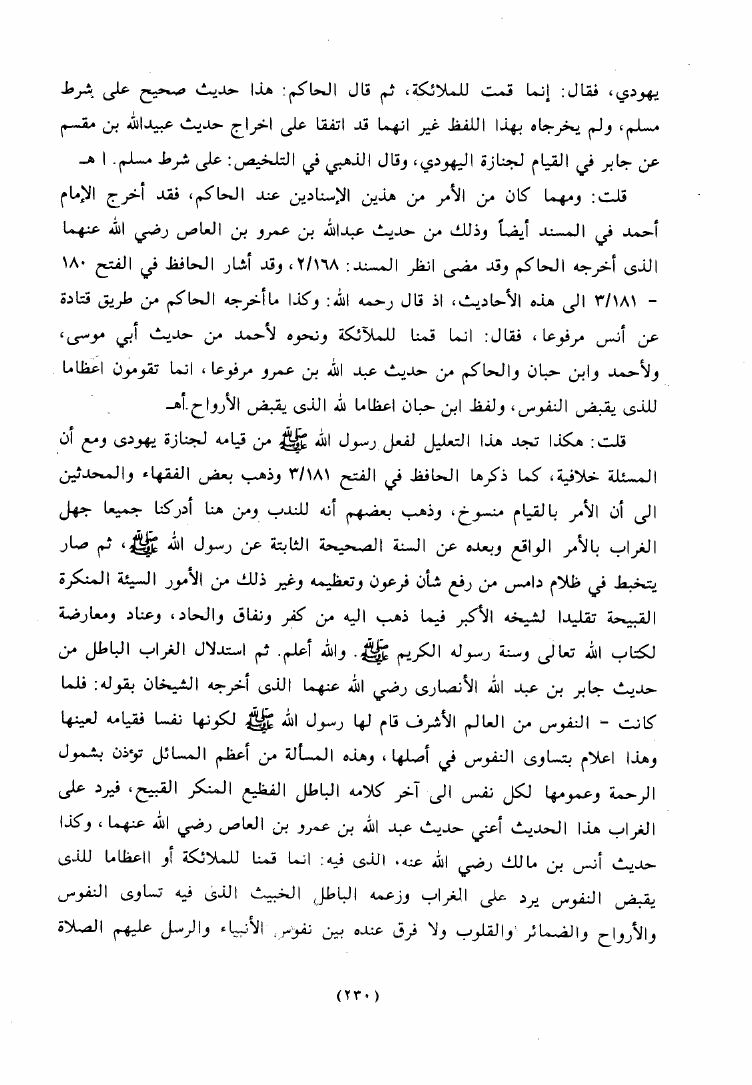 يهودي، فقال: إنما قمت للملائكة، ثم قال الحاكم: هذا حديث صحيح على شرط
مسلم، ولم يخرجاه بهذا اللفظ غير انهما قد اتفقا على اخراج حديث عبيدالله بن مقسم
عن جابر في القيام لجنازة اليهودي، وقال الذهبي في التلخيص: على شرط مسلم. ا هـ
قلت: ومهما كان من الأمر من هذين الإسنادين عند الحاكم، فقد أخرج الإمام
أحمد في المسند أيضاً وذلك من حديث عبدالله بن عمرو بن العاص رضي الله عنهما
الذى أخرجه الحاكم وقد مضى انظر المسند: ٢/١٦٨، وقد أشار الحافظ في الفتح ١٨٠
- ٣/١٨١ الى هذه الأحاديث، اذ قال رحمه الله: وكذا ماأخرجه الحاكم من طريق قتادة
عن أنس مرفوعا، فقال: انما قمنا للملآئكة ونحوه لأحمد من حديث أبي موسى،
ولأحمد وابن حبان والحاكم من حديث عبد الله بن عمرو مرفوعا، انما تقومون اعظاما
للذى يقبض النفوس، ولفظ ابن حبان اعظاما لله الذى يقبض الأرواح.أهـ
قلت: هكذا تجد هذا التعليل لفعل رسول الله ﷺ من قيامه لجنازة يهودى ومع أن
المسئلة خلافية، كما ذكرها الحافظ في الفتح ٣/١٨١ وذهب بعض الفقهاء والمحدثين
الى أن الأمر بالقيام منسوخ، وذهب بعضهم أنه للندب ومن هنا أدركنا جميعا جهل
الغراب بالأمر الواقع وبعده عن السنة الصحيحة الثابتة عن رسول الله ﷺ، ثم صار
يتخبط في ظلام دامس من رفع شأن فرعون وتعظيمه وغير ذلك من الأمور السيئة المنكرة
القبيحة تقليدا لشيخه الأكبر فيما ذهب اليه من كفر ونفاق والحاد، وعناد ومعارضة
لكتاب الله تعالى وسنة رسوله الكريم ﷺ. والله أعلم. ثم استدلال الغراب الباطل من
حديث جابر بن عبد الله الأنصارى رضي الله عنهما الذى أخرجه الشيخان بقوله: فلما
كانت - النفوس من العالم الأشرف قام لها رسول الله ﷺ لكونها نفسا فقيامه لعينها
وهذا اعلام بتساوى النفوس في أصلها، وهذه المسألة من أعظم المسائل تؤذن بشمول
الرحمة وعمومها لكل نفس الى آخر كلامه الباطل الفظيع المنكر القبيح، فيرد على
الغراب هذا الحديث أعني حديث عبد الله بن عمرو بن العاص رضي الله عنهما، وكذا
حديث أنس بن مالك رضي الله عنه، الذى فيه: انما قمنا للملائكة أو ااعظاما للذى
يقبض النفوس يرد على الغراب وزعمه الباطل الخبيث الذى فيه تساوى النفوس
والأرواح والضمائر والقلوب ولا فرق عنده بين نفوس الأنبياء والرسل عليهم الصلاة
(٢٣٠)